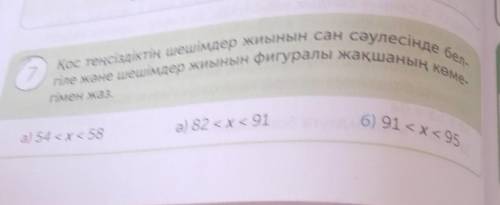 7
Қос теңсіздіктің шешімдер жиынын сан сәулесінде бел-
гіле және шешімдер жиынын фигуралы жақшаның көме-
гімен жаз.
а) 54 < x < 58 ә) 82 < x < 91 б) 91 < x < 95